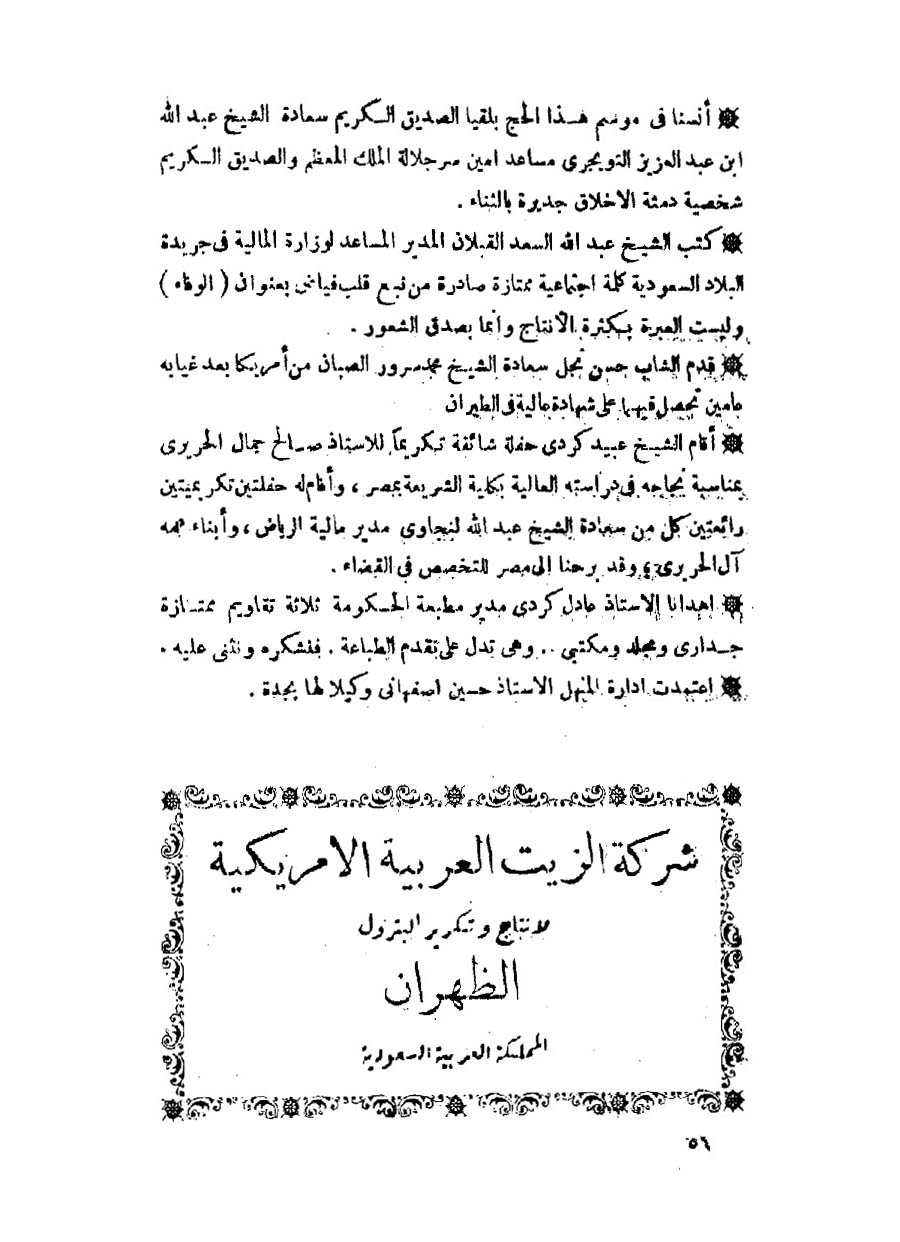 أنسنا فى موسم هـذا الحج بلقيا الصديق الـكريم سعادة الشيخ عبد الله
ابن عبد العزيز التويجرى مساعد امين سر جلالة الملك المعظم والصديق الـكريم
شخصية دمثة الاخلاق جديرة بالثناء .
كتب الشيخ عبد الله السعد القبلان المدير المساعد لوزارة المالية فى جريدة
البلاد السعودية كلمة اجتماعية ممتازة صادرة من نبع قلب فياض بعنوان ( الوفاء )
وليست العبرة بـكثرة الانتاج وانما بصدق الشعور .
قدم الشاب حسن نجل سعادة الشيـخ محمد سرور الصبان من أمريكا بعد غيابه
عامين تحصل فيهما على شهادة عالية فى الطيران
أقام الشيخ عبيد كردى حفلة شائقة تـكريماً للاستاذ صـالح جمال الحريرى
بمناسبة نجاحه فى دراسته العالية بكلية الشريعة بمصر ، وأقام له حفلتين تكريميتين
رائعتين كل من سعادة الشيخ عبد الله لنجاوى مدير مالية الرياض ، وأبناء عمه
آل الحريرى وقد برحنا إلى مصر للتخصص فى القضاء .
اهدانا الاستاذ عادل كردى مدير مطبعة الحـكومة ثلاثة تقاويم ممتـازة
جـدارى ومجلد ومكتبى .. وهى تدل على تقدم الطباعة . فنشكره ونثنى عليه .
اعتمدت ادارة المنهل الاستاذ حسين اصفهانى وكيلا لها بجدة .
شركة الزيت العربية الامريكية
لانتاج وتكرير البترول
الظهران
المملكة العربية السعودية
٥٦